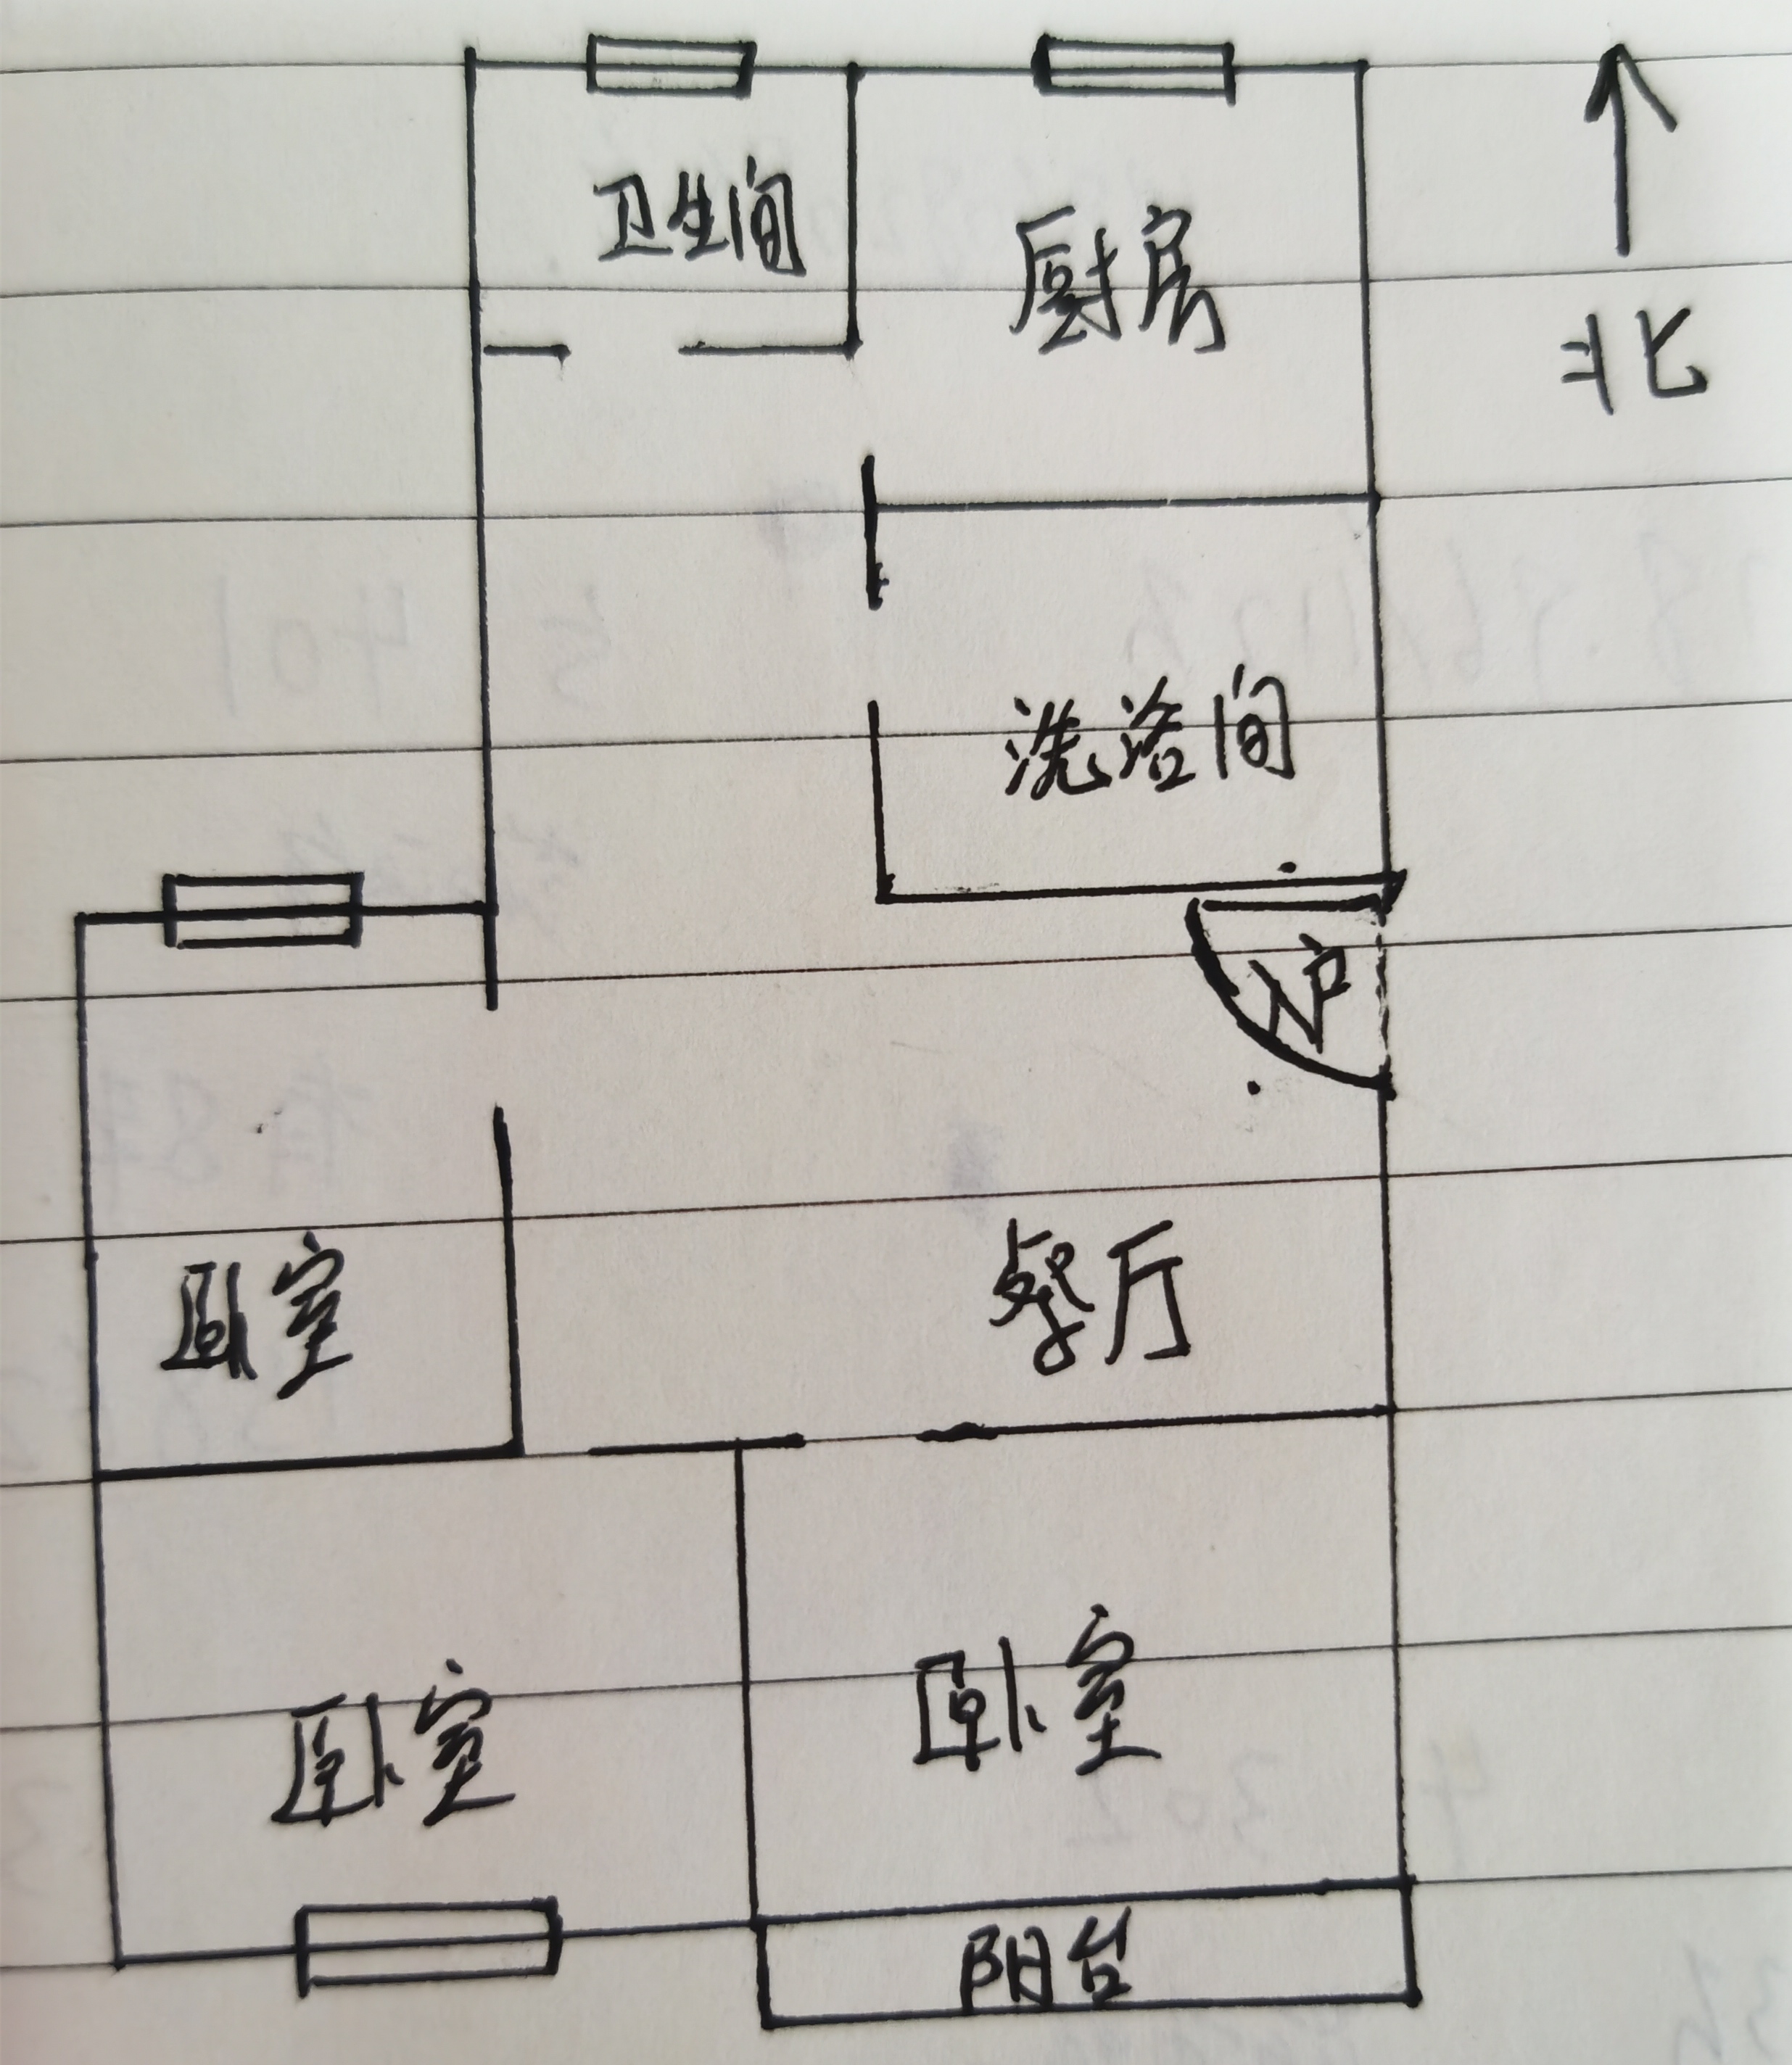 卫生间
厨房
北
洗浴间
入户
餐厅
卧室
卧室
卧室
阳台